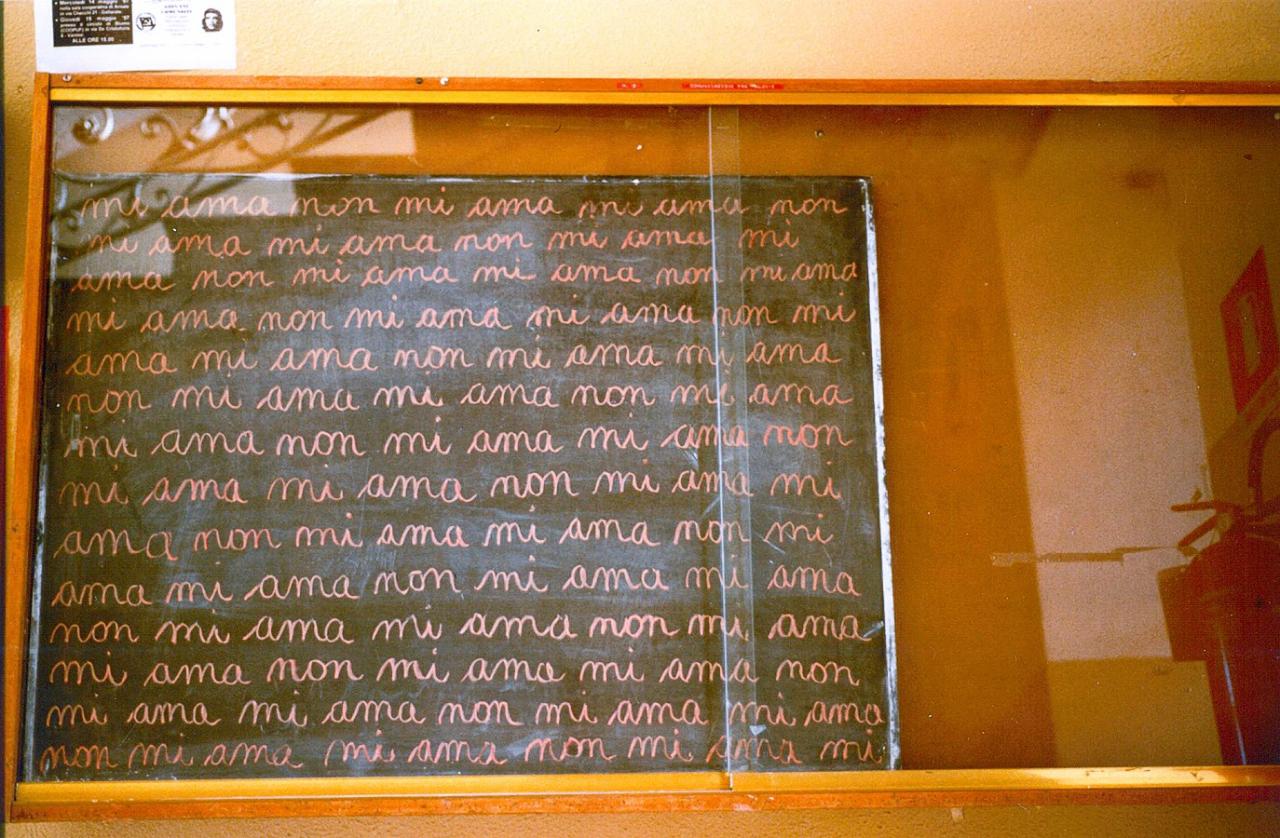 Mercoledì 14 maggio '97
nella sala cooperativa di Arnate
in via Checchi 21 - Gallarate
Giovedì 15 maggio '97
presso il circolo di Biumo
(COOPUF) in via De Cristoforis
5 - Varese
ALLE ORE 15.00
GIOVANI
COMUNISTI
mi ama non mi ama mi ama non
mi ama mi ama non mi ama mi
ama non mi ama mi ama non mi ama
mi ama non mi ama mi ama non mi
ama mi ama non mi ama mi ama
non mi ama mi ama non mi ama
mi ama non mi ama mi ama non
mi ama mi ama non mi ama mi
ama non mi ama mi ama non mi
ama mi ama non mi ama mi ama
non mi ama mi ama non mi ama
mi ama non mi ama mi ama non
mi ama mi ama non mi ama mi ama
non mi ama mi ama non mi ama mi